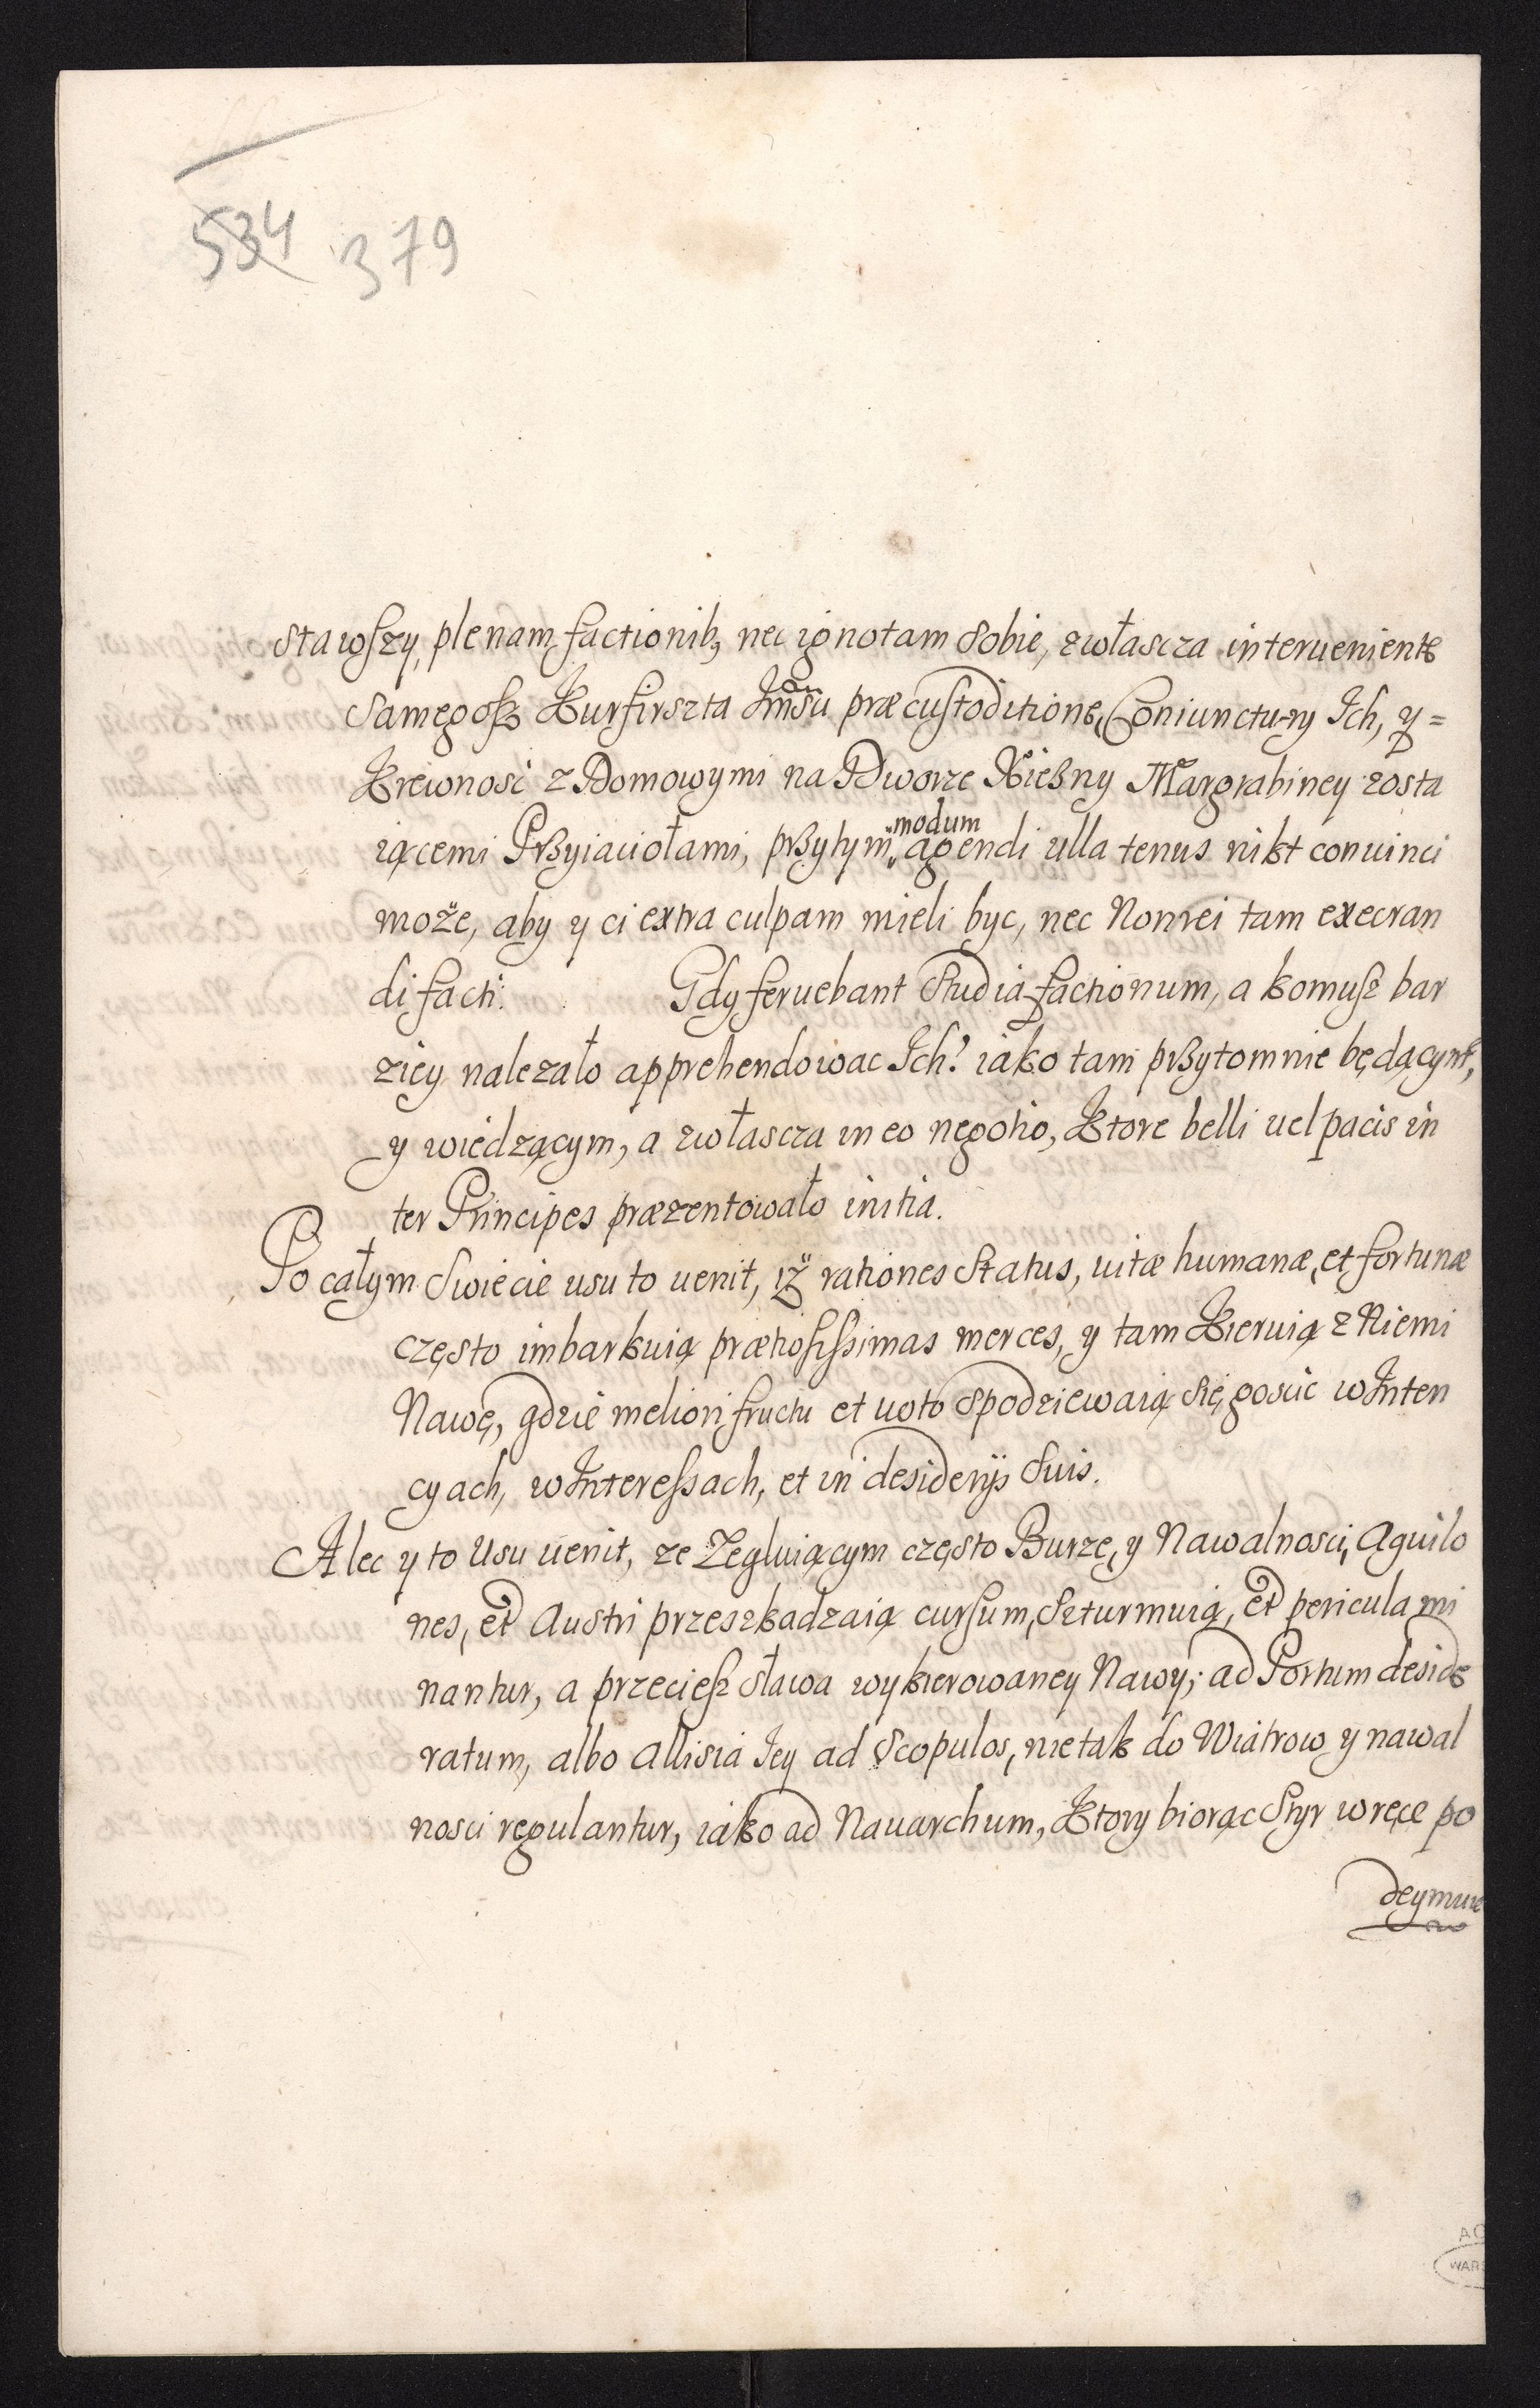 534 379
stawszy, plenam factionib, nec ignotam sobie, zwłascza interueniente
samegosz Kurfirszta Jmści præcustoditione, Coniunctury Ich, y=
Krewnosci z Domowymi na Dworze Xieżny Margrabiney zosta
iącemi Przyiaciołami, przytym modum agendi ulla tenus nikt conuinci
może, aby y ci extra culpam mieli byc, nec Non rei tam execran
di facti. Gdy feruebant Studia factionum, a komusz bar
ziey nalezało apprehendowac Ich? iako tam przytomnie będącym,
y wiedzącym, a zwłascza in eo negotio, Ktore belli uel pacis in
ter Principes præzentowało initia.
Po całym Swiecie usu to uenit, iż rationes Status, uitæ humanæ, et fortunæ
często imbarkuią prætiosissimas merces, y tam Kieruią z Niemi
Nawę, gdzie meliori fructu et uoto Spodziewaią się goscic w Inten
cyach, w Interessach, et in desiderijs Suis.
Alec y to Usu uenit, ze Zegluiącym często Burze, y Nawalnosci, Aquilo
nes, et Austri przeszkadzaią cursum, Szturmuią, et pericula mi
nantur, a przeciesz sława wykierowaney Nawy; ad Portum deside
ratum, albo Allisia Jey ad Scopulos, nie tak do Wiatrow y nawal
nosci regulantur, iako ad Nauarchum, Ktory biorąc Styr w ręce po
deymuie